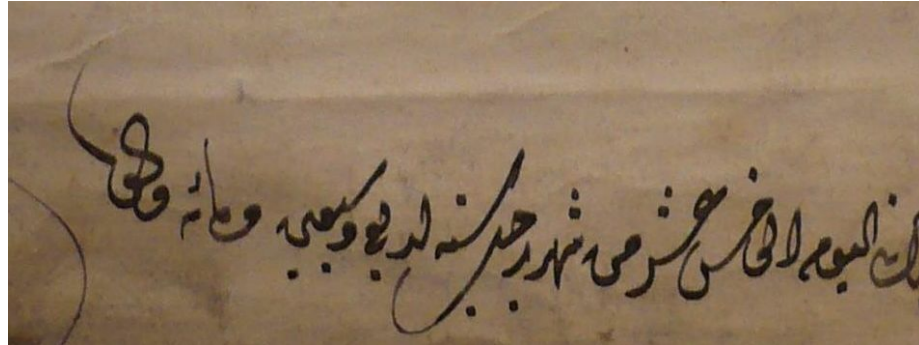 اليوم الخامس عشر من شهر رجب سنة اربع وسبعين ومائة والف